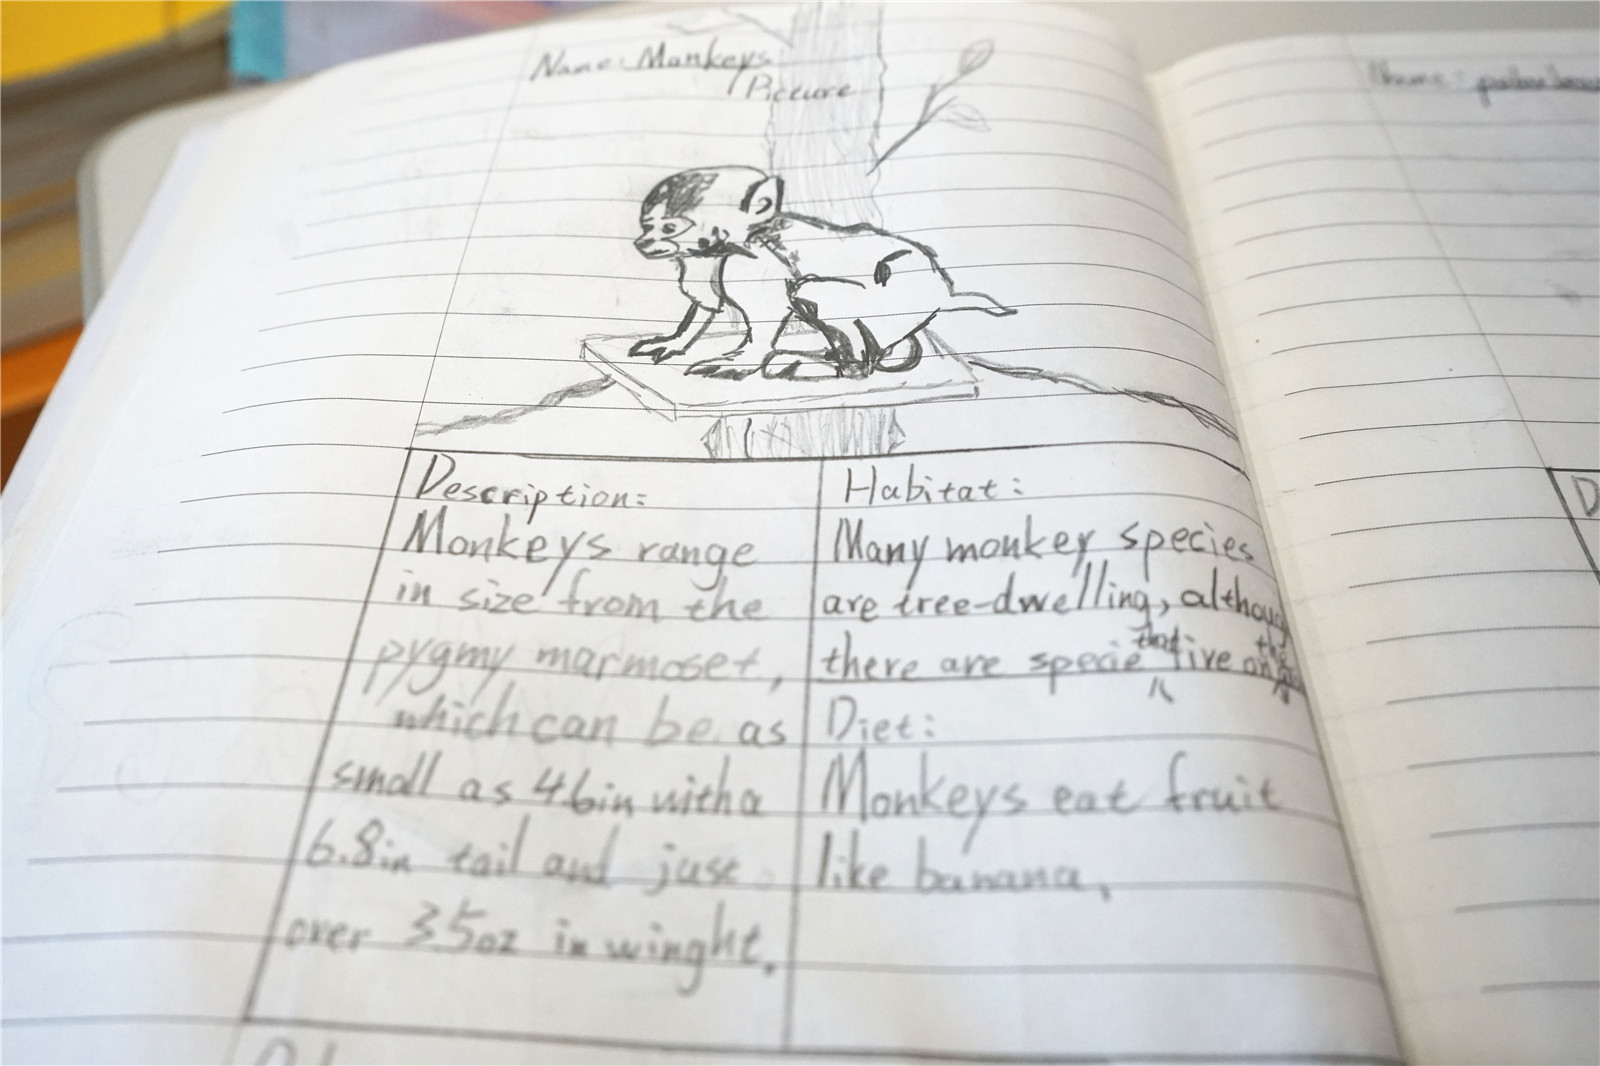 Name: Monkeys
Picture
Description:
Monkeys range
in size from the
pygmy marmoset,
which can be as
small as 4.6in with a
6.8in tail and just
over 3.5oz in winght.
Habitat:
Many monkey species
are tree-dwelling, although
there are specie that live on the
Diet:
Monkeys eat fruit
like banana.
Name:
D